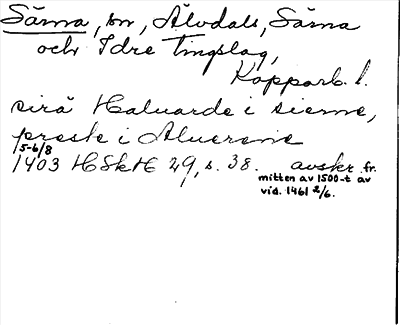 Särna, sn, Älvdals, Särna
och Idre tingslag,
Kopparb. l.
sirä Haluarde i sierne,
preste i Aluerene
15-6/8
1403 HSkH 29, s. 38. avskr. fr.
mitten av 1500-t av
vid. 1461 2/6.